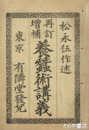 松永伍作述
再訂
增補
養蠶術講義
東京 有隣堂發兌